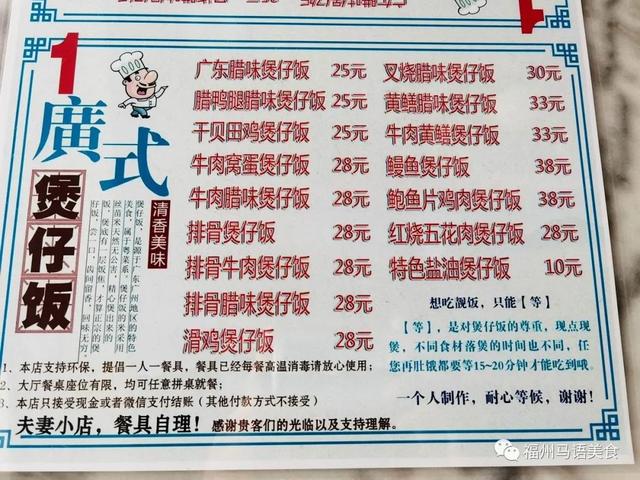 1
廣式
煲仔饭
清香美味
广东腊味煲仔饭 25元
腊鸭腿腊味煲仔饭 25元
干贝田鸡煲仔饭 25元
牛肉窝蛋煲仔饭 28元
牛肉腊味煲仔饭 28元
排骨煲仔饭 28元
排骨牛肉煲仔饭 28元
排骨腊味煲仔饭 28元
滑鸡煲仔饭 28元
叉烧腊味煲仔饭 30元
黄鳝腊味煲仔饭 33元
牛肉黄鳝煲仔饭 33元
鳗鱼煲仔饭 38元
鲍鱼片鸡肉煲仔饭 38元
红烧五花肉煲仔饭 28元
特色盐油煲仔饭 10元
煲仔饭，是源于广东广州地区的特色
美食，属于粤菜系，煲仔饭的米采用
丝苗米天然无公害，精心煲出来的
饭，煲底有一层饭焦，才算正宗的煲
仔饭，尝一口，齿间留香，回味无穷。
想吃靓饭，只能【等】
【等】，是对煲仔饭的尊重，现点现
煲，不同食材落煲的时间也不同，任
您再肚饿都要等15~20分钟才能吃到哦。
一个人制作，耐心等候，谢谢!
1、本店支持环保，提倡一人一餐具，餐具已经每餐高温消毒请放心使用；
2、大厅餐桌座位有限，均可任意拼桌就餐；
3、本店只接受现金或者微信支付结账（其他付款方式不接受）
夫妻小店，餐具自理！感谢贵客们的光临以及支持理解。
福州马语美食